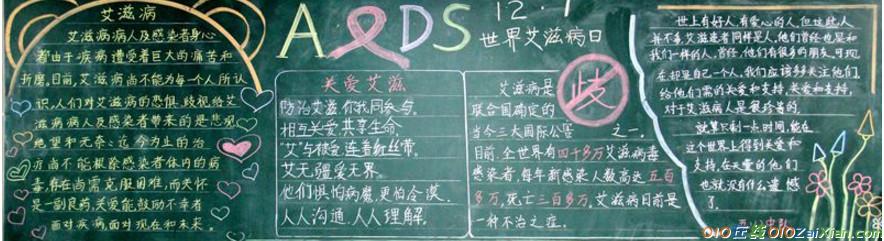 艾滋病
艾滋病病人及感染者身心
都由于疾病遭受着巨大的痛苦和
折磨。目前,艾滋病尚不能为每一个人所认
识,人们对艾滋病的恐惧、歧视给艾
滋病病人及感染者带来的是悲观
绝望和无奈;迄今为止的治
疗尚不能根除感染者体内的病
毒,存在尚需克服困难,而关怀
是一副良药,关爱能鼓励不幸者
面对疾病,面对现在和未来。
AIDS
12.1
世界艾滋病日
关爱艾滋
防治艾滋,你我同参与。
相互关爱,共享生命,
“艾”与被爱,连着红丝带。
艾无疆爱无界。
他们惧怕病魔,更怕冷漠。
人人沟通,人人理解。
歧
艾滋病是
联合国确定的
当今三大国际公害 之一。
目前,全世界有四千多万艾滋病毒
感染者,每年新感染人数高达五百
多万,死亡三百多万,艾滋病目前是
一种不治之症。
世上有好人,有爱心的人,但这些人
并不多,艾滋患者同样是人,他们曾经也是和
我们一样的人,曾经,他们有很多的朋友,可现
在却是自己一个人,我们应该多多关注他们,
给他们需的关爱和支持,关爱和支持,
对于艾滋病人是很珍贵的,
就算只剩一点时间,能在
这个世界上得到关爱和
支持,在天堂的他们
也就没有什么遗憾
了。
010在线010zaixian.com